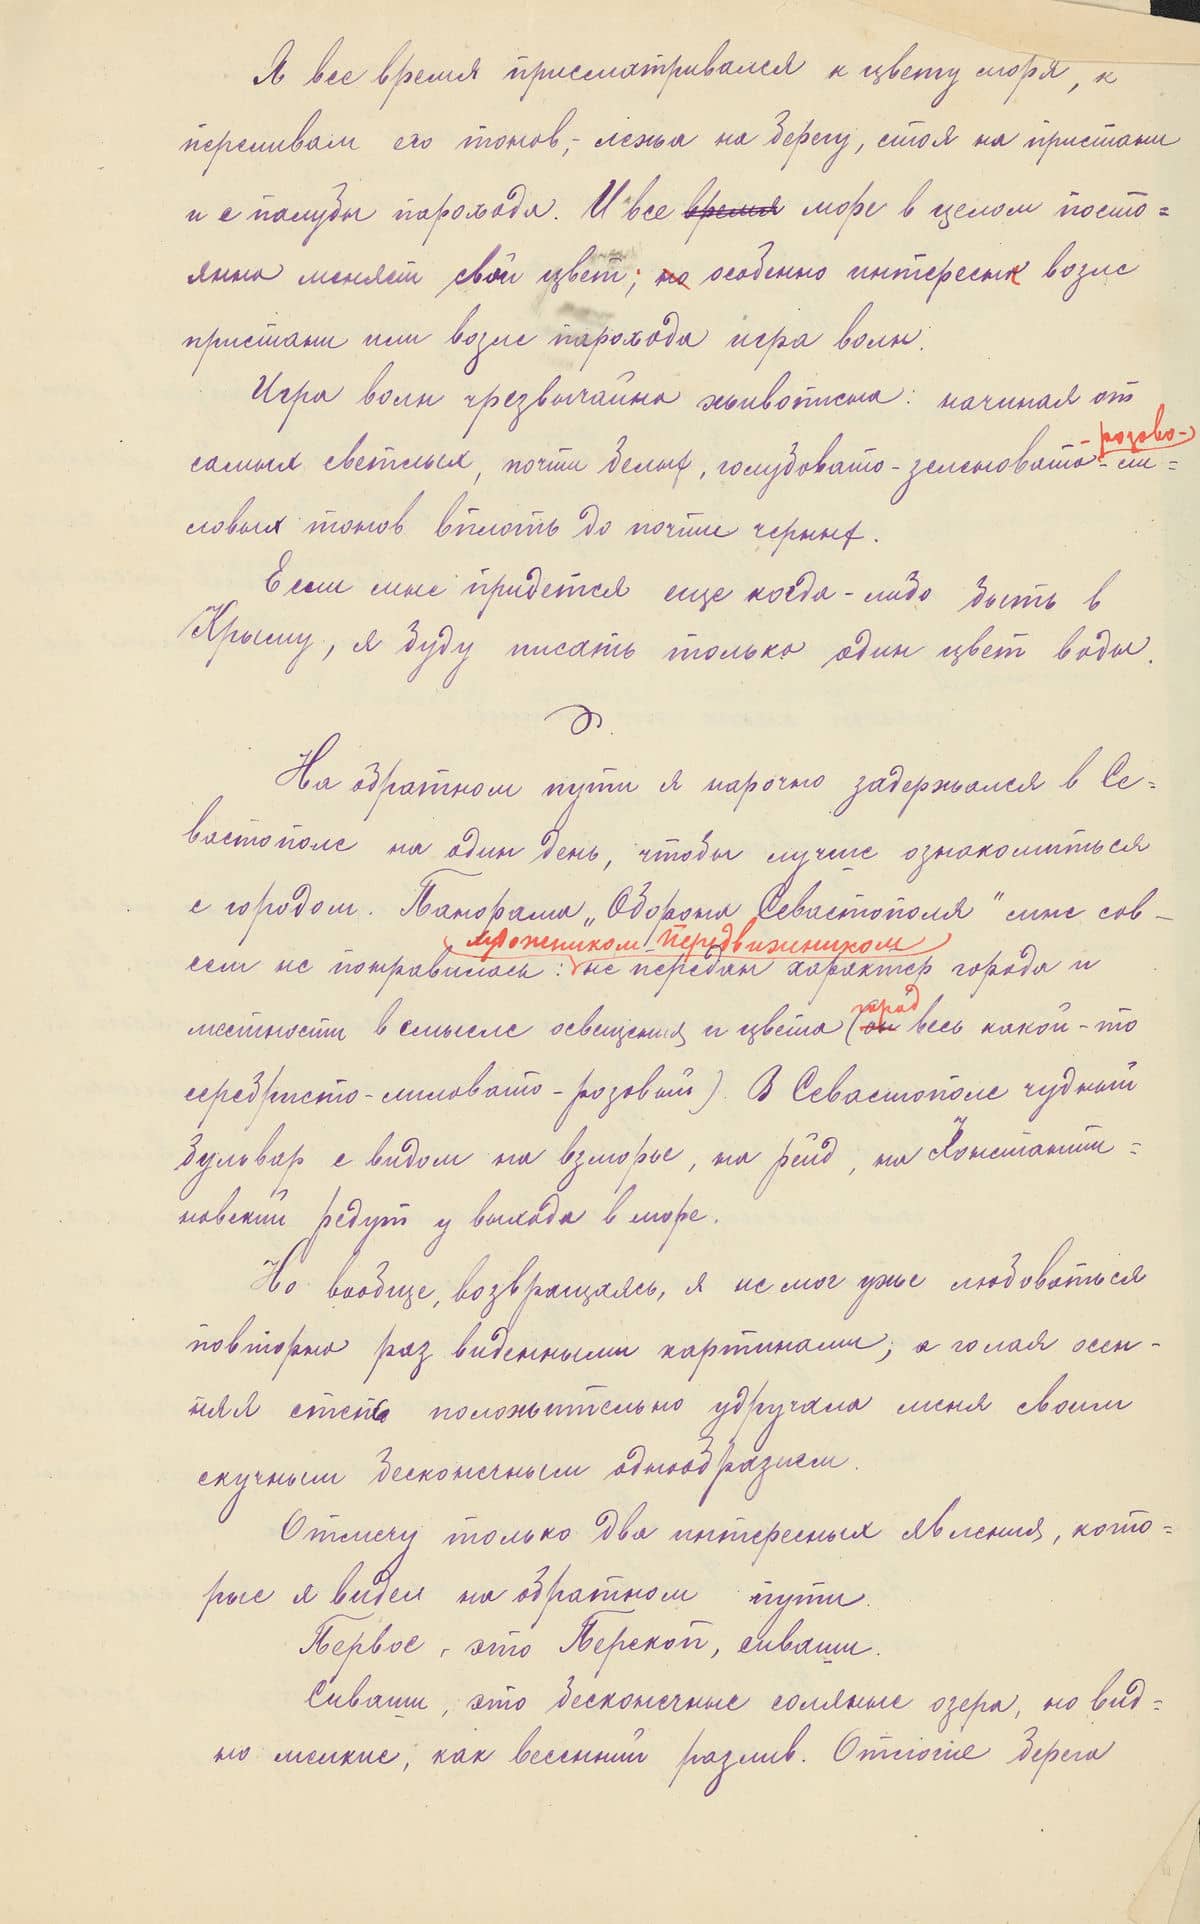 Я все время присматривался к цвету моря, к
переливам его тонов, - лежа на берегу, стоя на пристани
и с палубы парохода. И все время море в целом посто=
янно меняет свой цвет; но особенно интересна возле
пристани или возле парохода игра волн.
Игра волн чрезвычайно живописна: начиная от
- розово-
самых светлых, почти белых, голубовато-зеленовато-ли=
ловых тонов вплоть до почти черных.
Если мне придется еще когда-либо быть в
Крыму, я буду писать только один цвет воды.
На обратном пути я нарочно задержался в Се-
вастополе на один день, чтобы лучше ознакомиться
с городом. Панорама „Оборона Севастополя" мне сов-
художником передвижником
сем не понравилась: не передан характер города и
город
местности в смысле освещения и цвета (он весь какой-то
серебристо-лиловато-розовый). В Севастополе чудный
бульвар с видом на взморье, на рейд, на Константи=
новский редут у выхода в море.
Но вообще, возвращаясь, я не мог уже любоваться
повторно раз виденными картинами; а голая осен-
няя степь положительно удручала меня своим
скучным бесконечным однообразием.
Отмечу только два интересных явления, кото=
рые я видел на обратном пути.
Первое, это Перекоп, сиваши.
Сиваши, это бесконечные соляные озера, но вид=
но мелкие, как весенний разлив. Отлогие берега